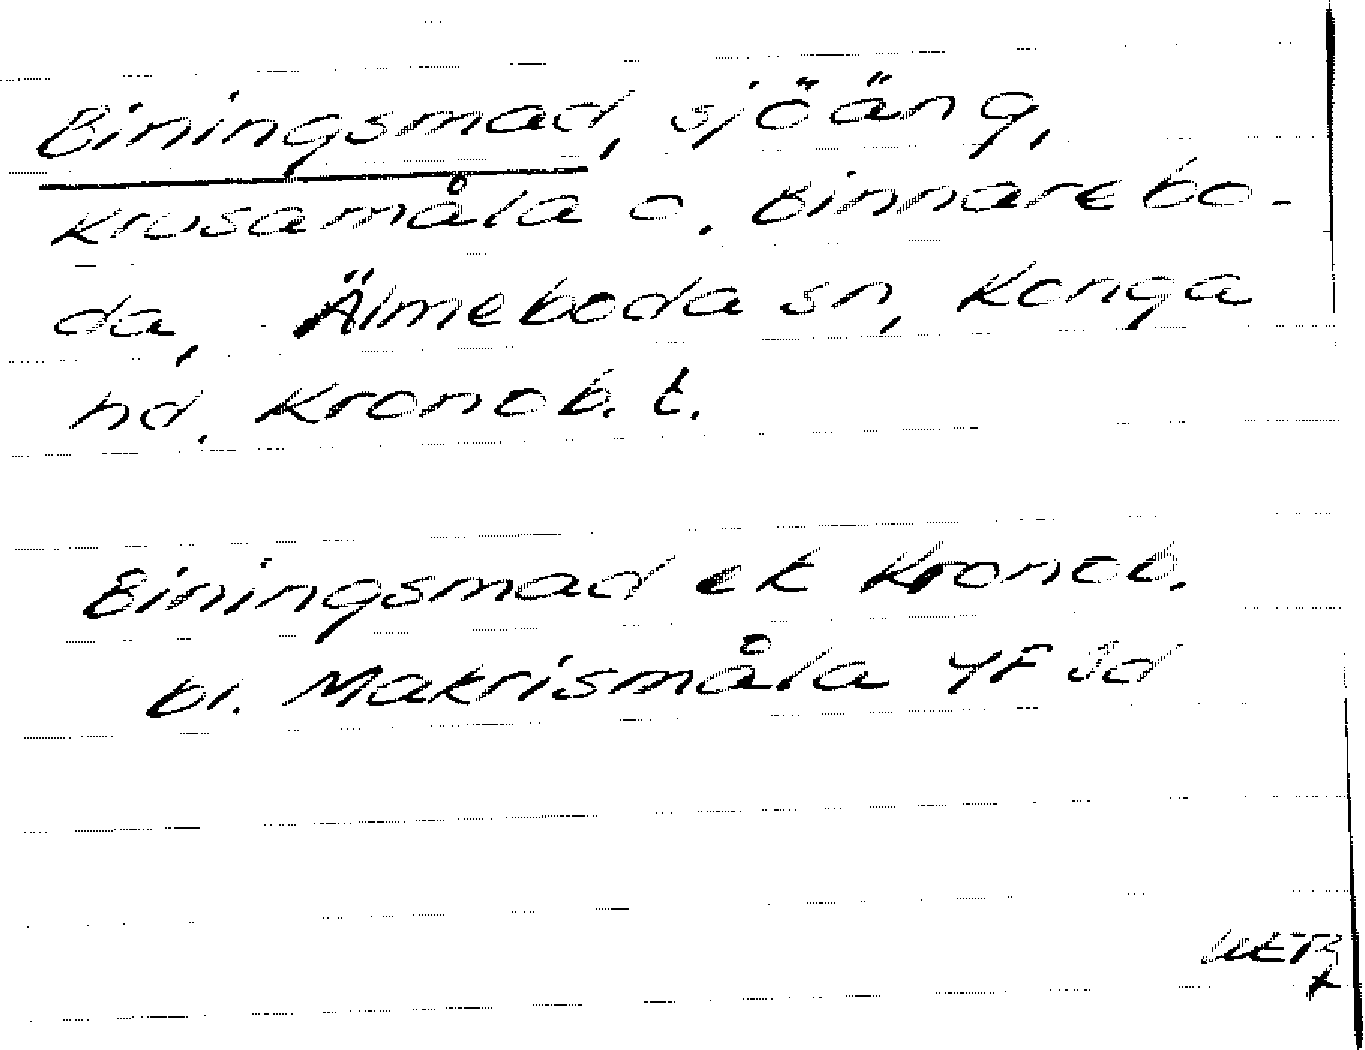 Biningsmad, sjöäng,
Krusamåla o. Binnarebo-
da, Älmeboda sn, Konga
hd. Kronob. l.
Biningsmad ek Kronob.
bl. Makrismåla YF